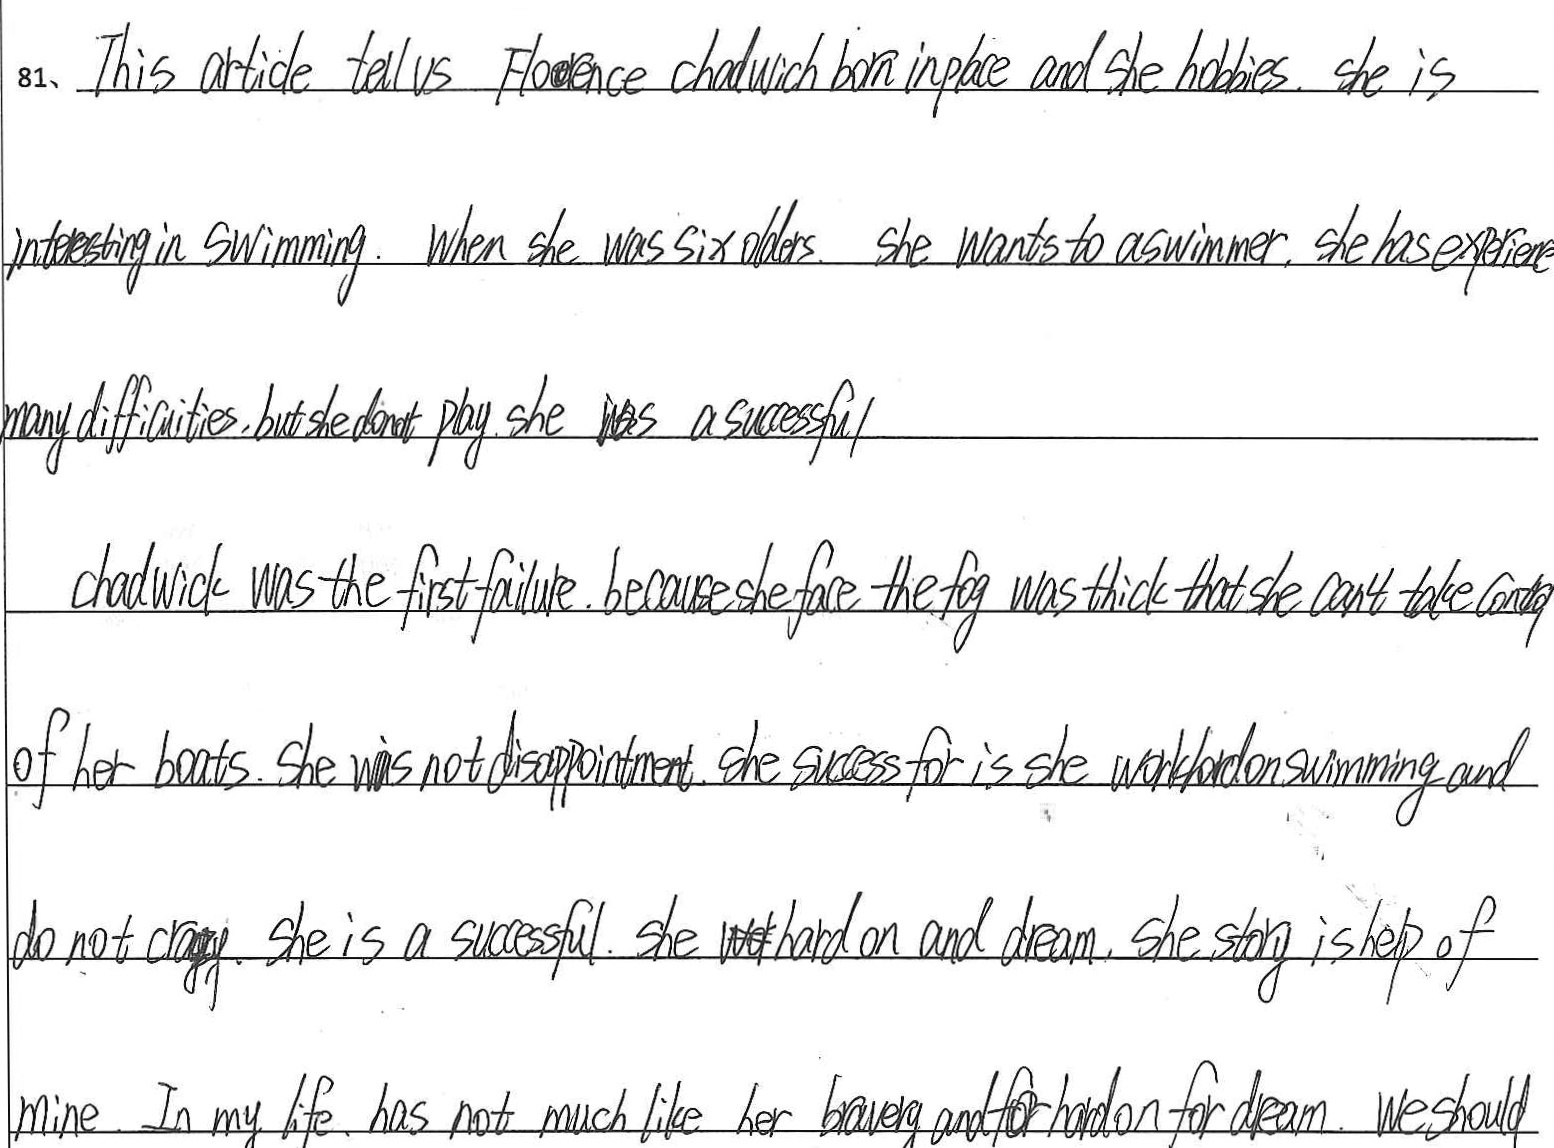 81、This article tell us Florence chadwich born in place and she hobbies. she is
interesting in swimming. When she was six olders. she wants to a swimmer. she has experiene
many difficuities, but she do not play. she was a successful
chadwick was the first failure. because she face the fog was thick that she can't take
of her boats. She was not disappointment. she success for is she work hard on swimming and
do not crazy. she is a successful. she hard on and dream. she story is help of
mine. In my life. has not much like her bravery and for hard on for dream. We should